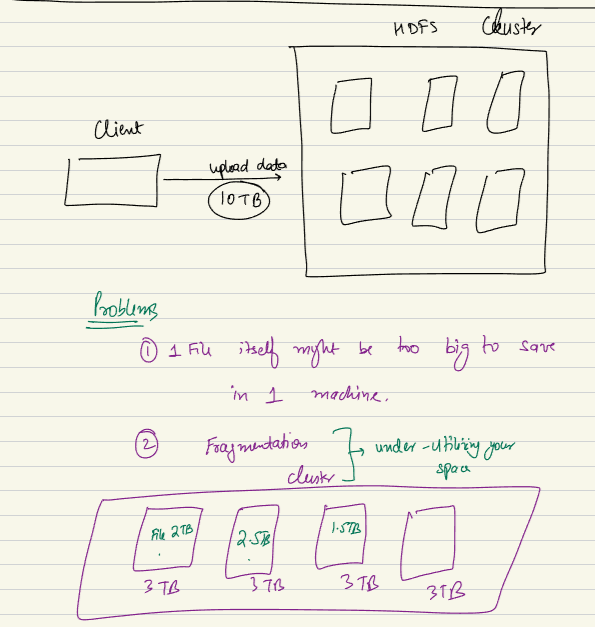 HDFS Cluster
Client
upload data
10TB
Problems
① 1 File itself might be too big to save
in 1 machine.
② Fragmentation → under-utilizing your
space
cluster
File 2TB 2.5TB 1.5TB
3TB 3TB 3TB 3TB